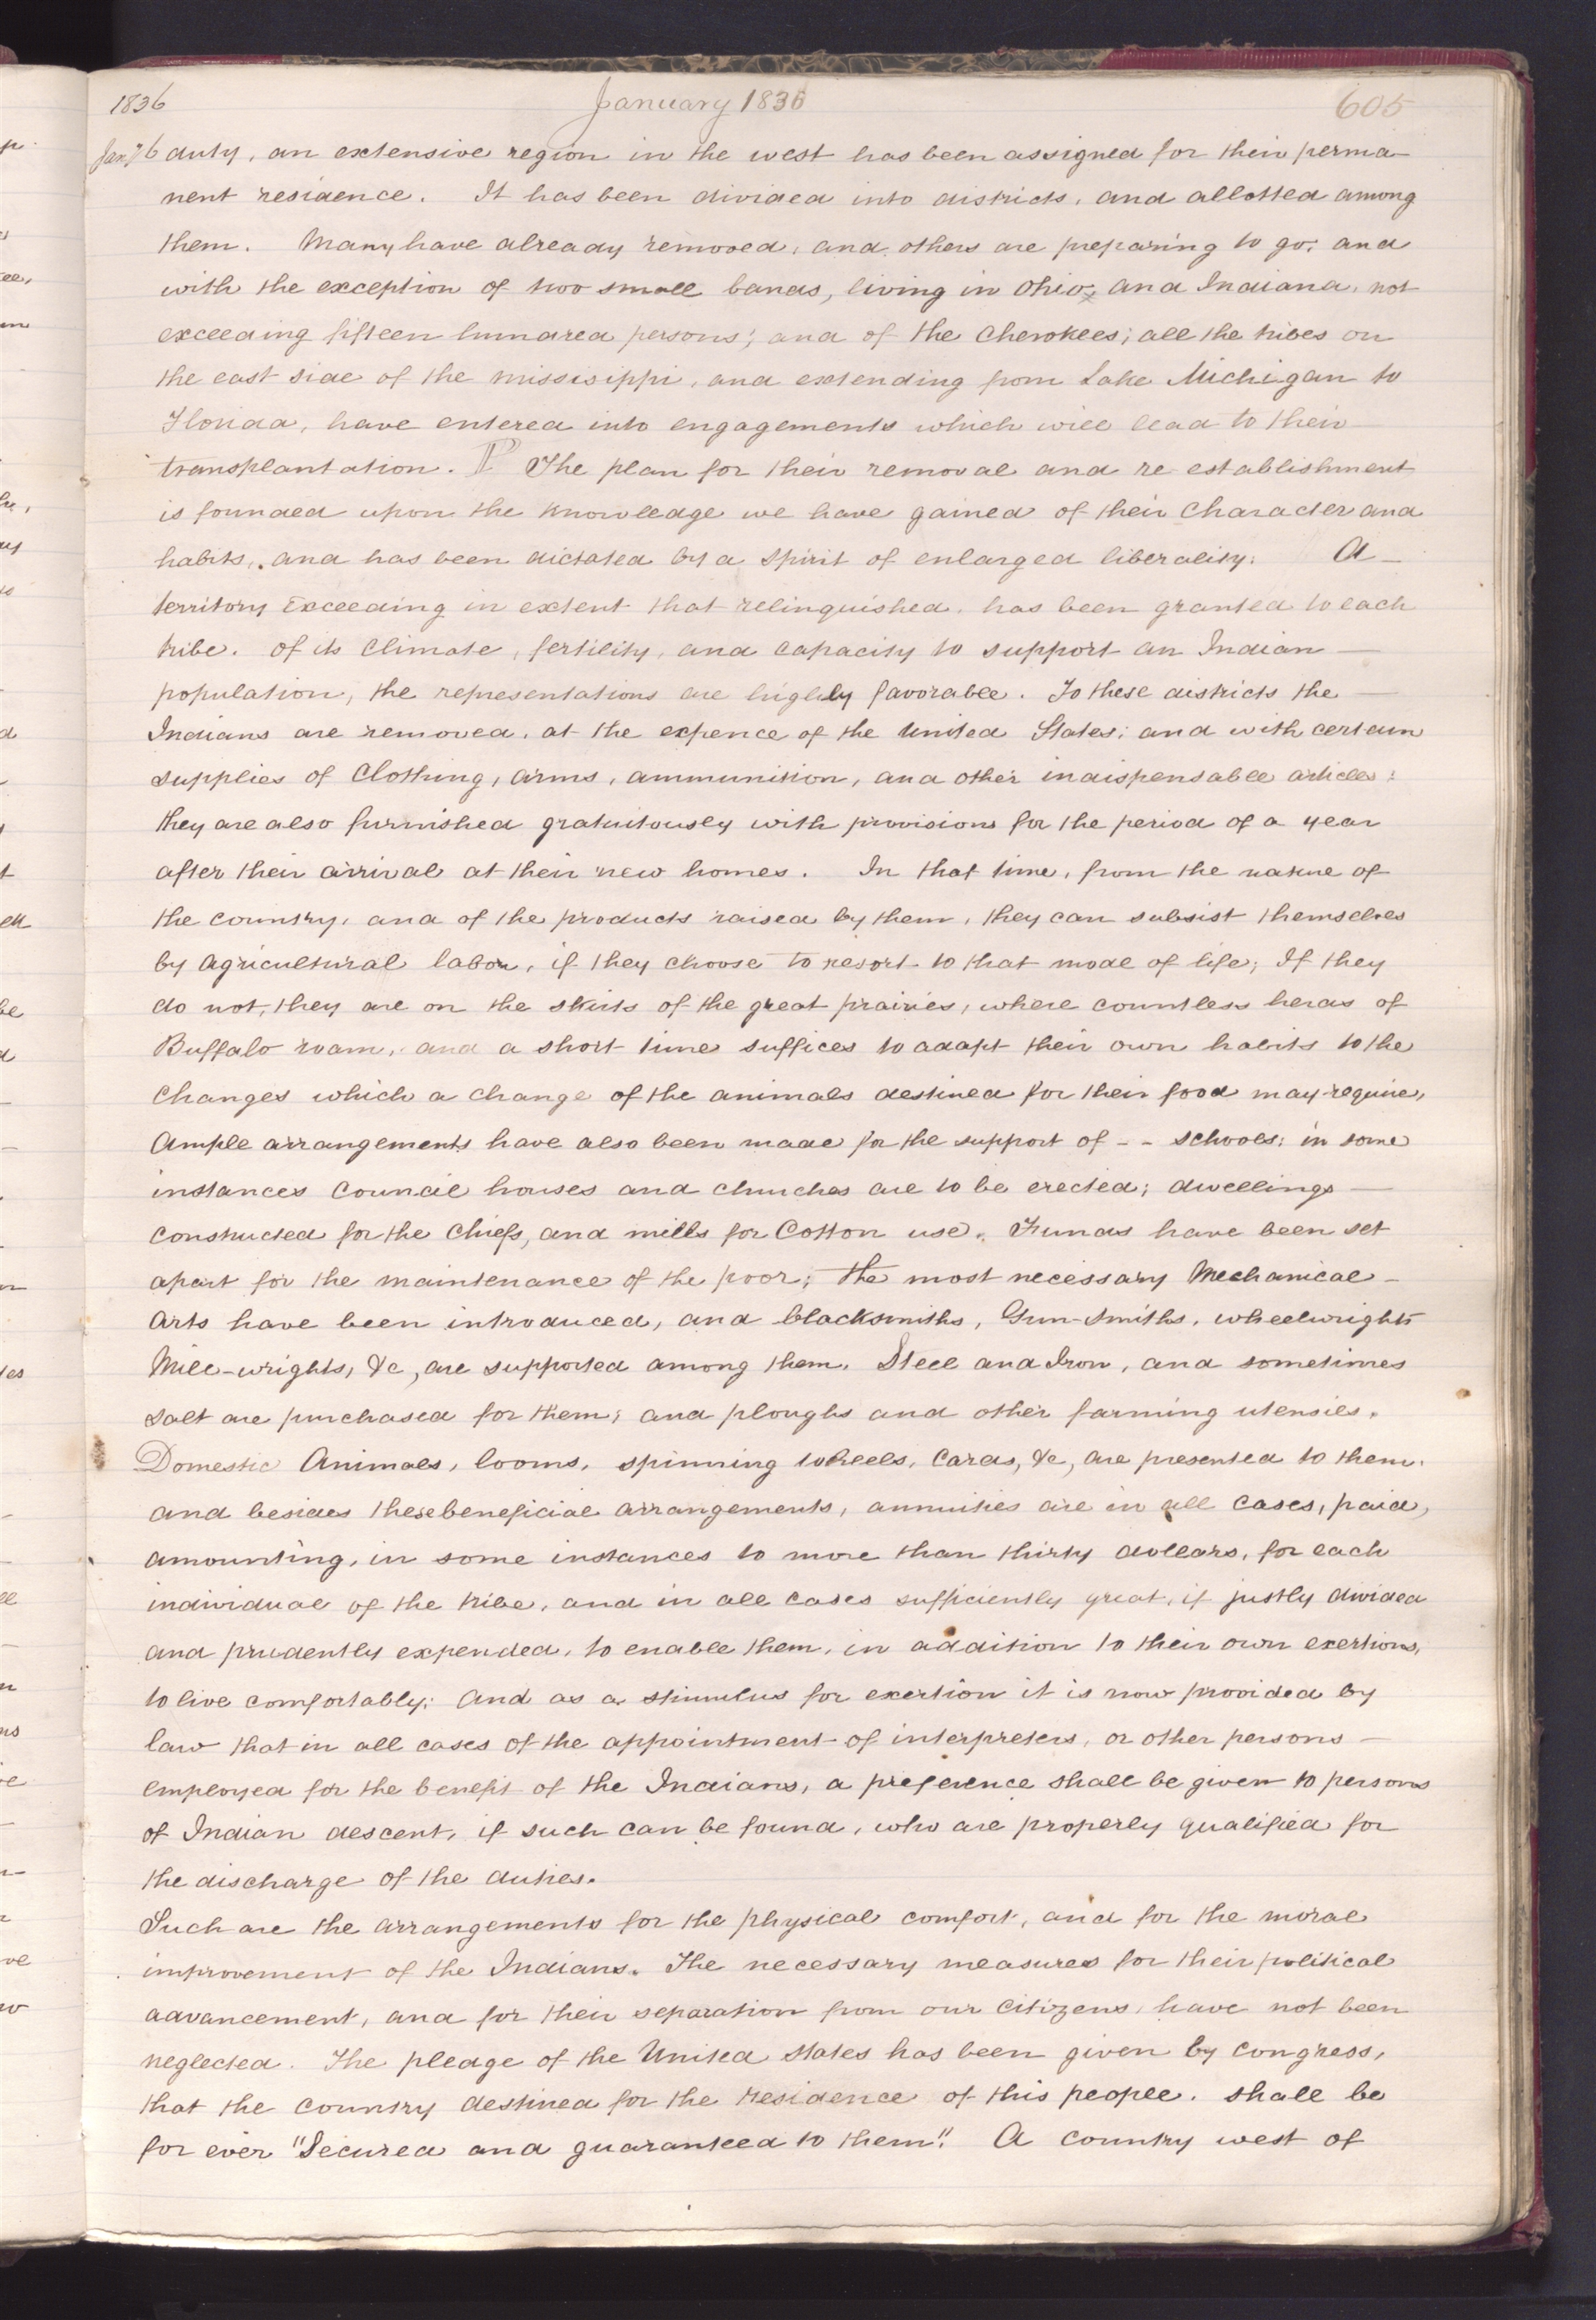 1836 January 1836 605
Jany 6 duty, an extensive region in the west has been assigned for their perma-
nent residence. It has been divided into districts, and allotted among
them. Many have already removed, and others are preparing to go; and
with the exception of two small bands, living in Ohio, and Indiana, not
exceeding fifteen hundred persons; and of the Cherokees; all the tribes on
the east side of the Missisippi, and extending from Lake Michigan to
Florida, have entered into engagements which will lead to their
transplantation. P The plan for their removal and re-establishment
is founded upon the knowledge we have gained of their character and
habits, and has been dictated by a spirit of enlarged liberality. A -
territory exceeding in extent that relinquished, has been granted to each
tribe. Of its climate, fertility, and capacity to support an Indian -
population, the representations are highly favorable. To these districts the -
Indians are removed, at the expence of the United States; and with certain
supplies of clothing, arms, ammunition, and other indispensable articles;
they are also furnished gratuitously with provisions for the period of a year
after their arrival at their new homes. In that time, from the nature of
the country, and of the products raised by them, they can subsist themselves
by agricultural labor, if they choose to resort to that mode of life; If they
do not, they are on the skirts of the great prairies, where countless herds of
Buffalo roam, and a short time suffices to adapt their own habits to the
changes which a change of the animals destined for their food may require,
Ample arrangements have also been made for the support of - - schools; in some
instances council houses and churches are to be erected; dwellings -
constructed for the Chiefs, and mills for Cotton use. Funds have been set
apart for the maintenance of the poor; the most necessary Mechanical -
Arts have been introduced, and blacksmiths, Gun-smiths, wheelwrights
Mill-wrights, &c, are supported among them. Steel and Iron, and sometimes
salt are purchased for them; and ploughs and other farming utensils.
Domestic Animals, looms, spinning wheels, cards, &c, are presented to them.
and besides these beneficial arrangements, annuities are in all cases, paid,
amounting, in some instances to more than thirty dollars, for each
individual of the tribe, and in all cases sufficiently great, if justly divided
and prudently expended, to enable them, in addition to their own exertions,
to live comfortably; And as a stimulus for exertion it is now provided by
law that in all cases of the appointment of interpreters, or other persons -
employed for the benefit of the Indians, a preference shall be given to persons
of Indian descent, if such can be found, who are properly qualified for
the discharge of the duties.
Such are the arrangements for the physical comfort, and for the moral
improvement of the Indians. The necessary measures for their political
advancement, and for their separation from our citizens, have not been
neglected. The pledge of the United States has been given by congress,
that the country destined for the residence of this people. shall be
for ever "Secured and guaranteed to them". A country west of